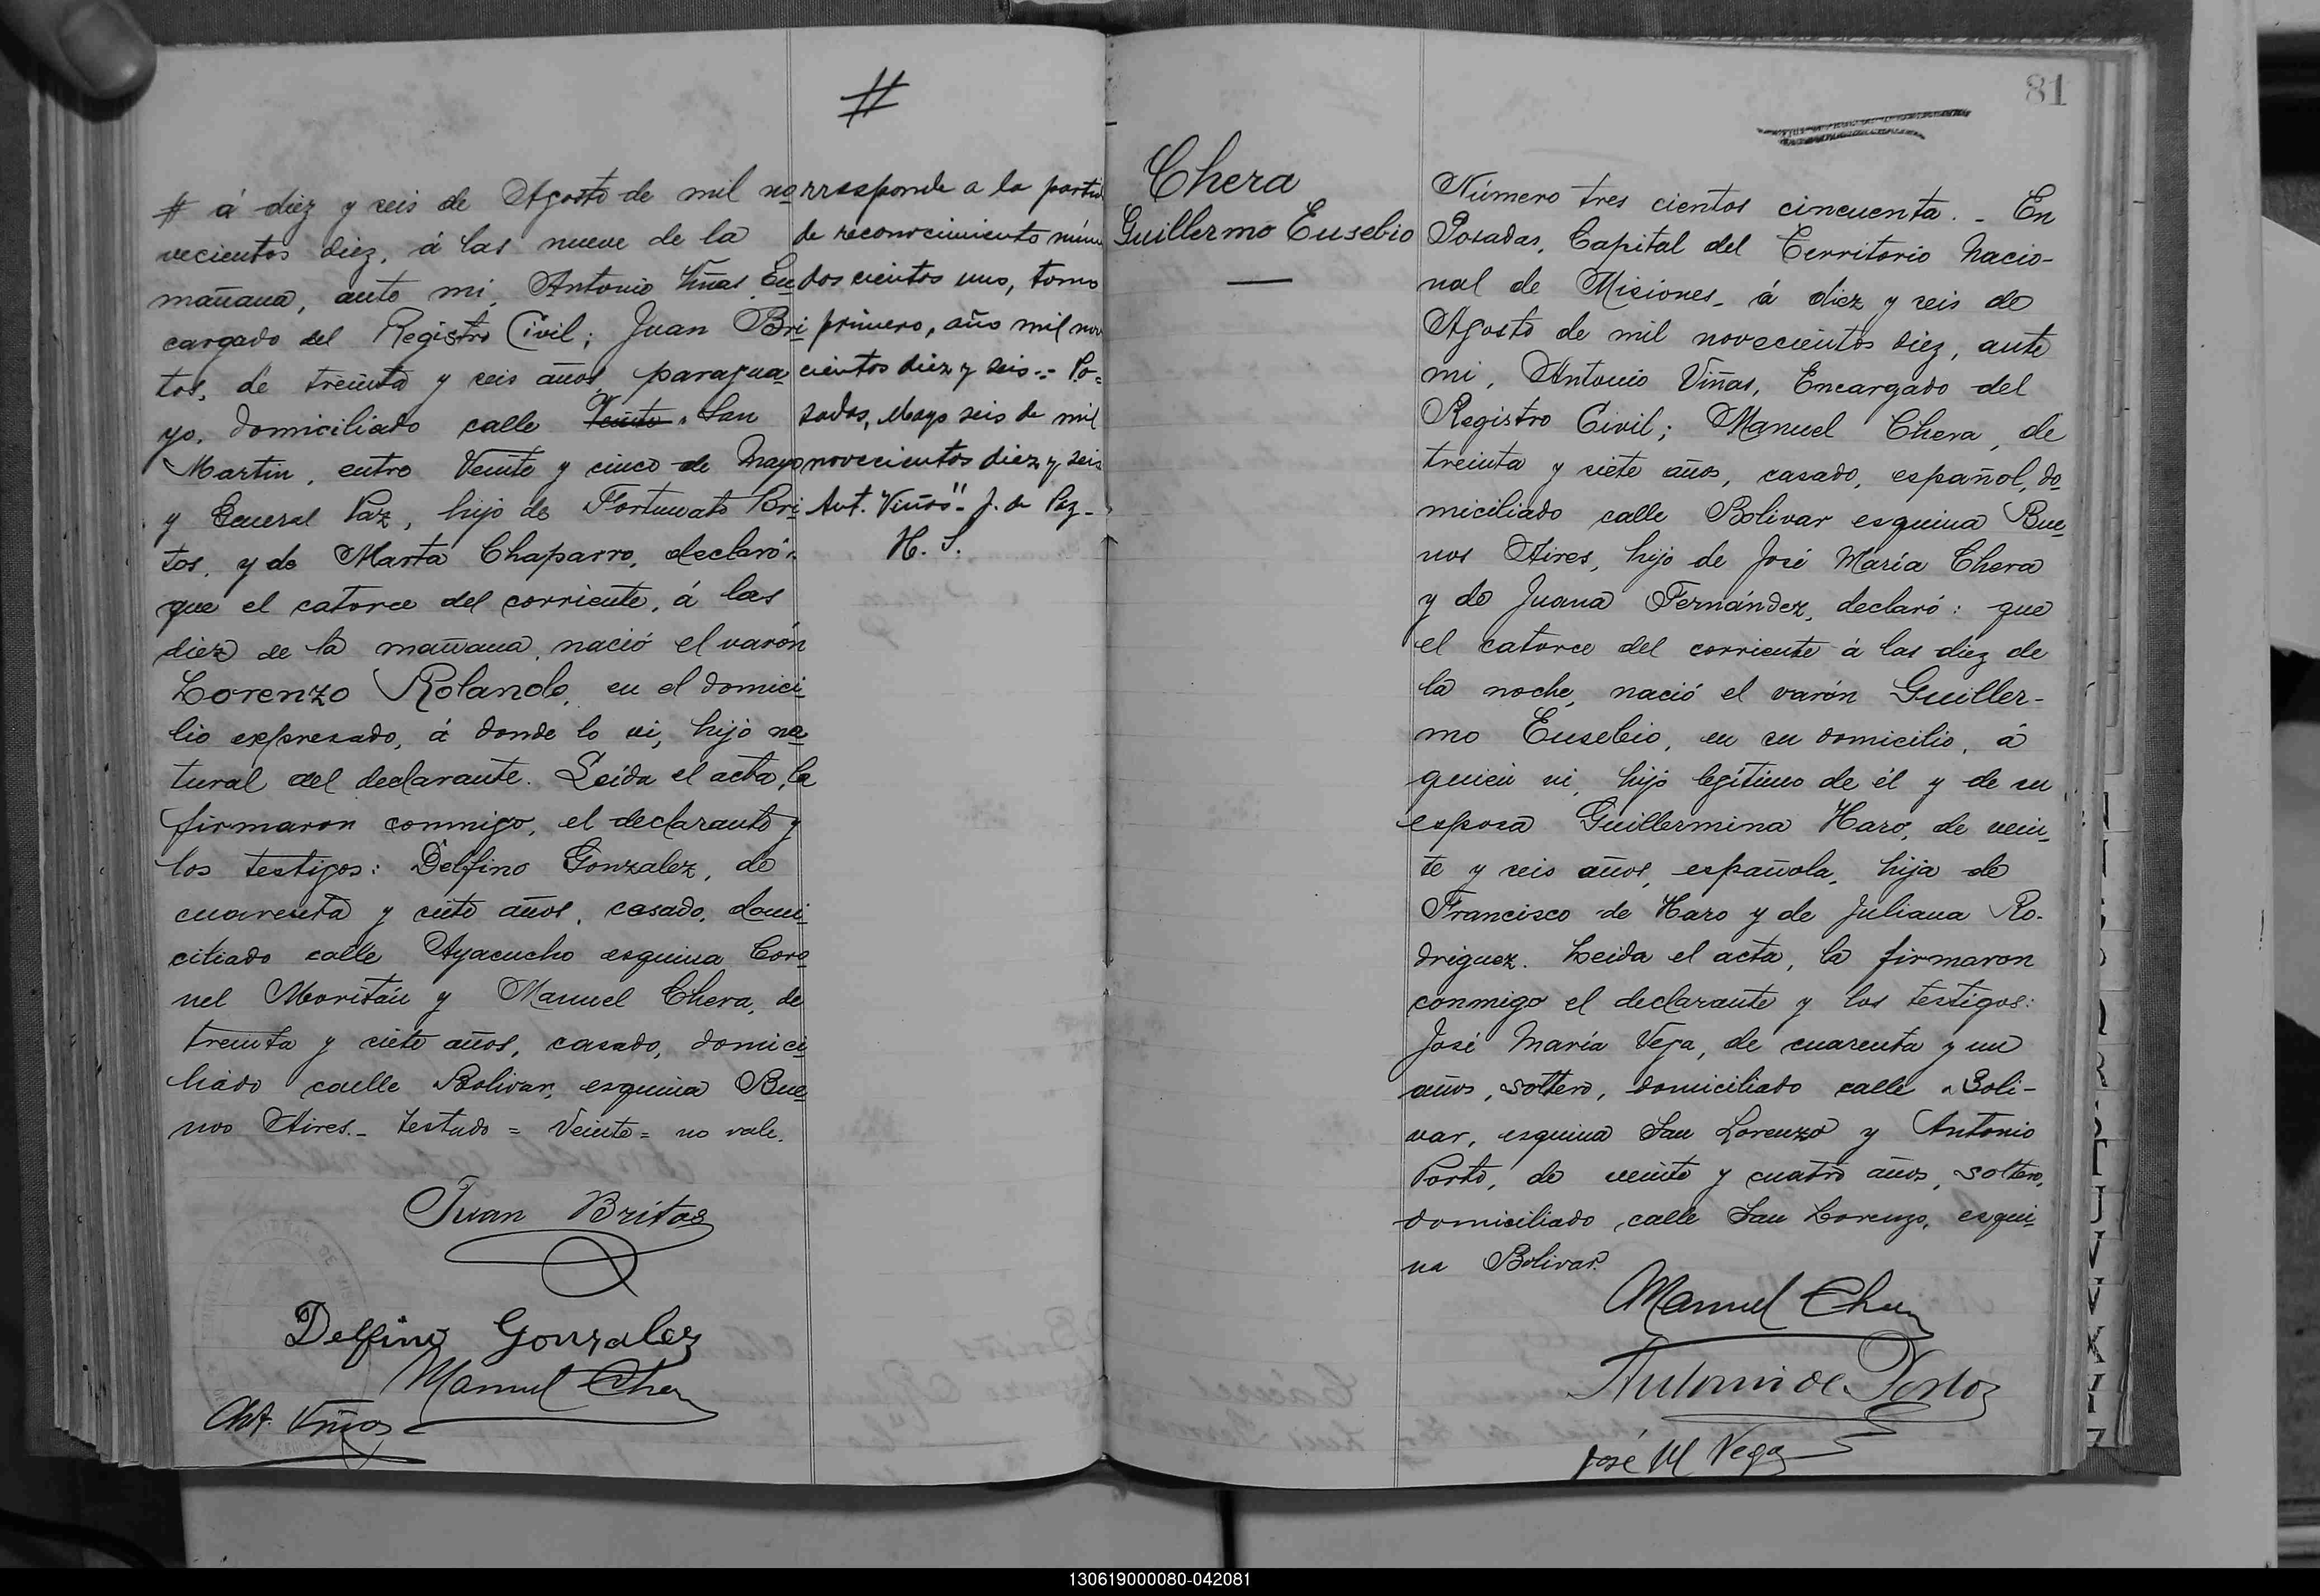 #
# á diez y seis de Agosto de mil no
vecientos diez, á las nueve de la
mañana, ante mi, Antonio Viñas, En
cargado del Registro Civil; Juan Bri
tos, de treinta y seis años, paragua
yo, domiciliado calle Veinte San
Martin, entre Veinte y cinco de Mayo
y General Paz, hijo de Fortunato Bri
tos, y de Marta Chaparro, declaró:
que el catorce del corriente, á las
diez de la mañana, nació el varón
Lorenzo Rolando, en el domici
lio expresado, á donde lo vi, hijo na
tural del declarante. Leida el acta, la
firmaron conmigo, el declarante y
los testigos: Delfino Gonzalez, de
cuarenta y siete años, casado, domi
ciliado calle Ayacucho esquina Coro
nel Moritán y Manuel Chera, de
treinta y siete años, casado, domici
liado calle Bolivar, esquina Bue
nos Aires.- Testado = Veinte = no vale.
Juan Britos
Delfino Gonzalez
Manuel Chera
Ant. Viñas
rresponde a la partid
de reconocimiento núme
doscientos uno, tomo
primero, año mil nov
cientos diez y seis.- Po=
sadas, Mayo seis de mil
novecientos diez y seis
Ant. "Viñas". J. de Paz-
H. S.
81
Chera
Guillermo Eusebio
Número tres cientos cincuenta. - En
Posadas, Capital del Territorio Nacio-
nal de Misiones, á diez y seis de
Agosto de mil novecientos diez, ante
mi, Antonio Viñas, Encargado del
Registro Civil; Manuel Chera, de
treinta y siete años, casado, español, do
miciliado calle Bolivar esquina Bue
nos Aires, hijo de José María Chera
y de Juana Fernández, declaró: que
el catorce del corriente á las diez de
la noche, nació el varón Guiller-
mo Eusebio, en su domicilio, á
quien vi, hijo legítimo de él y de su
esposa Guillermina Haro, de vein
te y seis años, española, hija de
Francisco de Haro y de Juliana Ro-
driguez. Leida el acta, la firmaron
conmigo el declarante y los testigos:
José María Vega, de cuarenta y un
años, soltero, domiciliado calle Boli-
var, esquina San Lorenzo y Antonio
Porto, de veinte y cuatro años, soltero,
domiciliado calle San Lorenzo, esqui
na Bolivar.
Manuel Chera
Antonio de Porto
José M Vega
130619000080-042081